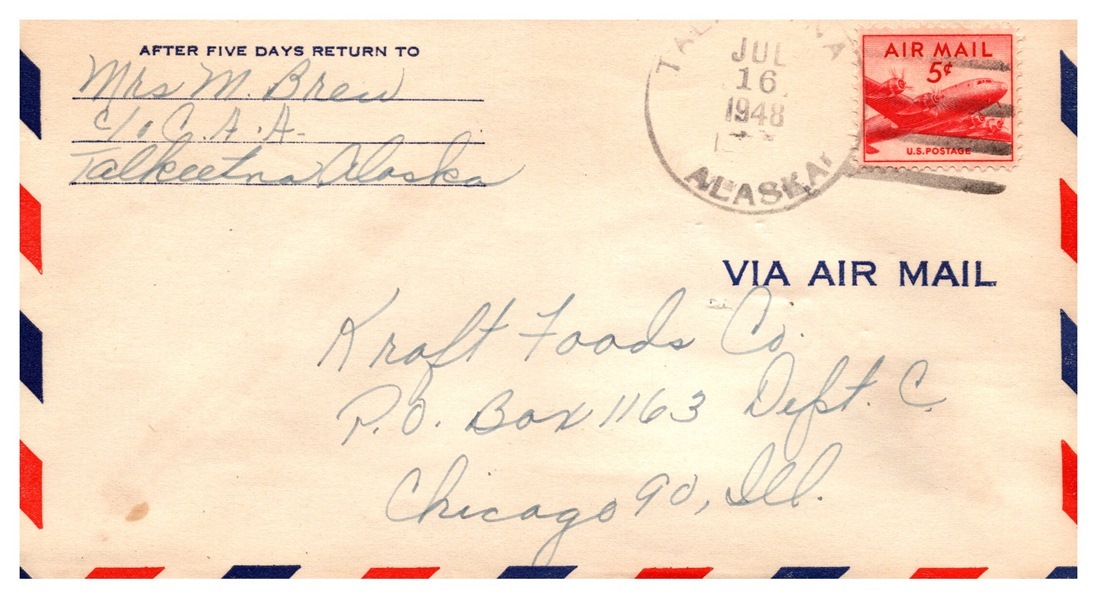 AFTER FIVE DAYS RETURN TO
Mrs M. Brew
c/o C.A.A.
Talkeetna Alaska
TALKEETNA
JUL
16
1948
ALASKA
AIR MAIL
5¢
U.S. POSTAGE
VIA AIR MAIL
Kraft Foods Co.
P.O. Box 1163 Dept. C
Chicago 90, Ill.